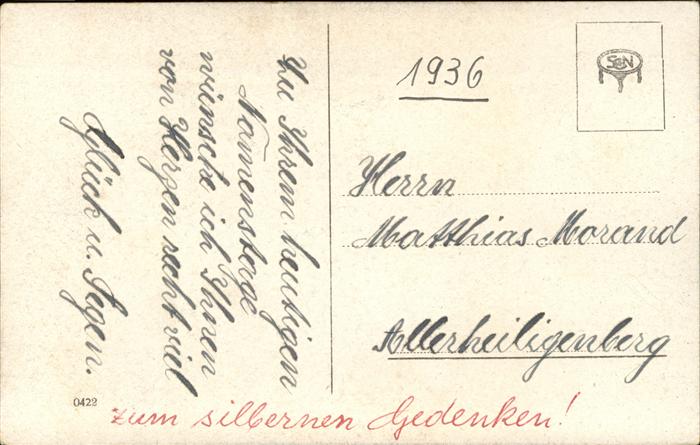 Zu Ihrem heutigen
Namenstage
wünsche ich Ihnen
von Herzen recht viel
Glück u. Segen.
1936
S&N
Herrn
Matthias Morand
Allerheiligenberg
0422
zum silbernen Gedenken!